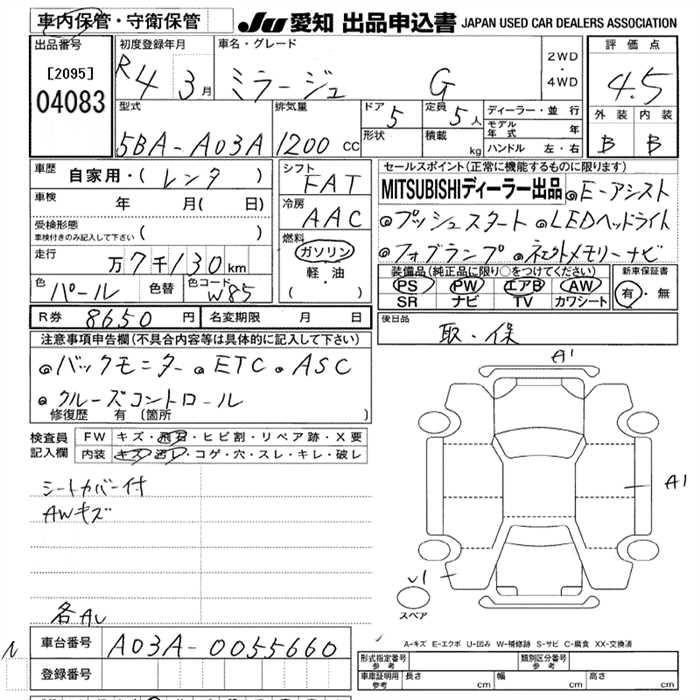 車内保管・守衛保管
JU 愛知 出品申込書 JAPAN USED CAR DEALERS ASSOCIATION
出品番号
[2095]
04083
初度登録年月
R4 3月
車名・グレード
ミラージュ G
2WD
・
4WD
評価点
4.5
型式
5BA-A03A
排気量
1200 cc
ドア
5
定員
5人
形状
積載
kg
ディーラー・並行
モデル年式 年
ハンドル 左・右
外装 内装
B B
車歴
自家用・( レンタ )
車検
年 月( 日)
受検形態
車検付きのみ記入して下さい ( )
走行
万7千130km
色
パール
色替
色コード
W85
シフト
FAT
冷房
AAC
燃料
ガソリン
軽・油
( ・ )
セールスポイント(正常に機能するものに限ります)
MITSUBISHIディーラー出品 ◎E-アシスト
◎プッシュスタート ◎LEDヘッドライト
◎フォグランプ ◎ネクストメモリーナビ
装備品(純正品に限り○をつけてください)
PS PW エアB AW
SR ナビ TV カワシート
新車保証書
有・無
R券 8650 円
名変期限 月 日
後日品
取・保
注意事項申告欄(不具合内容等は具体的に記入して下さい)
◎バックモニター ◎ETC ◎ASC
◎クルーズコントロール
修復歴 有 (箇所 )
検査員
記入欄
FW キズ・飛石・ヒビ割・リペア跡・X要
内装 キズ・汚レ・コゲ・穴・スレ・キレ・破レ
シートカバー付
AWキズ
各AU
A1
A1
U1
スペア
A-キズ E-エクボ U-凹み W-補修跡 S-サビ C-腐食 XX-交換済
N
車台番号 A03A-0055660
登録番号
形式指定番号
参考
類別区分番号
参考
車庫証明用
参考
長さ cm 幅 cm 高さ cm